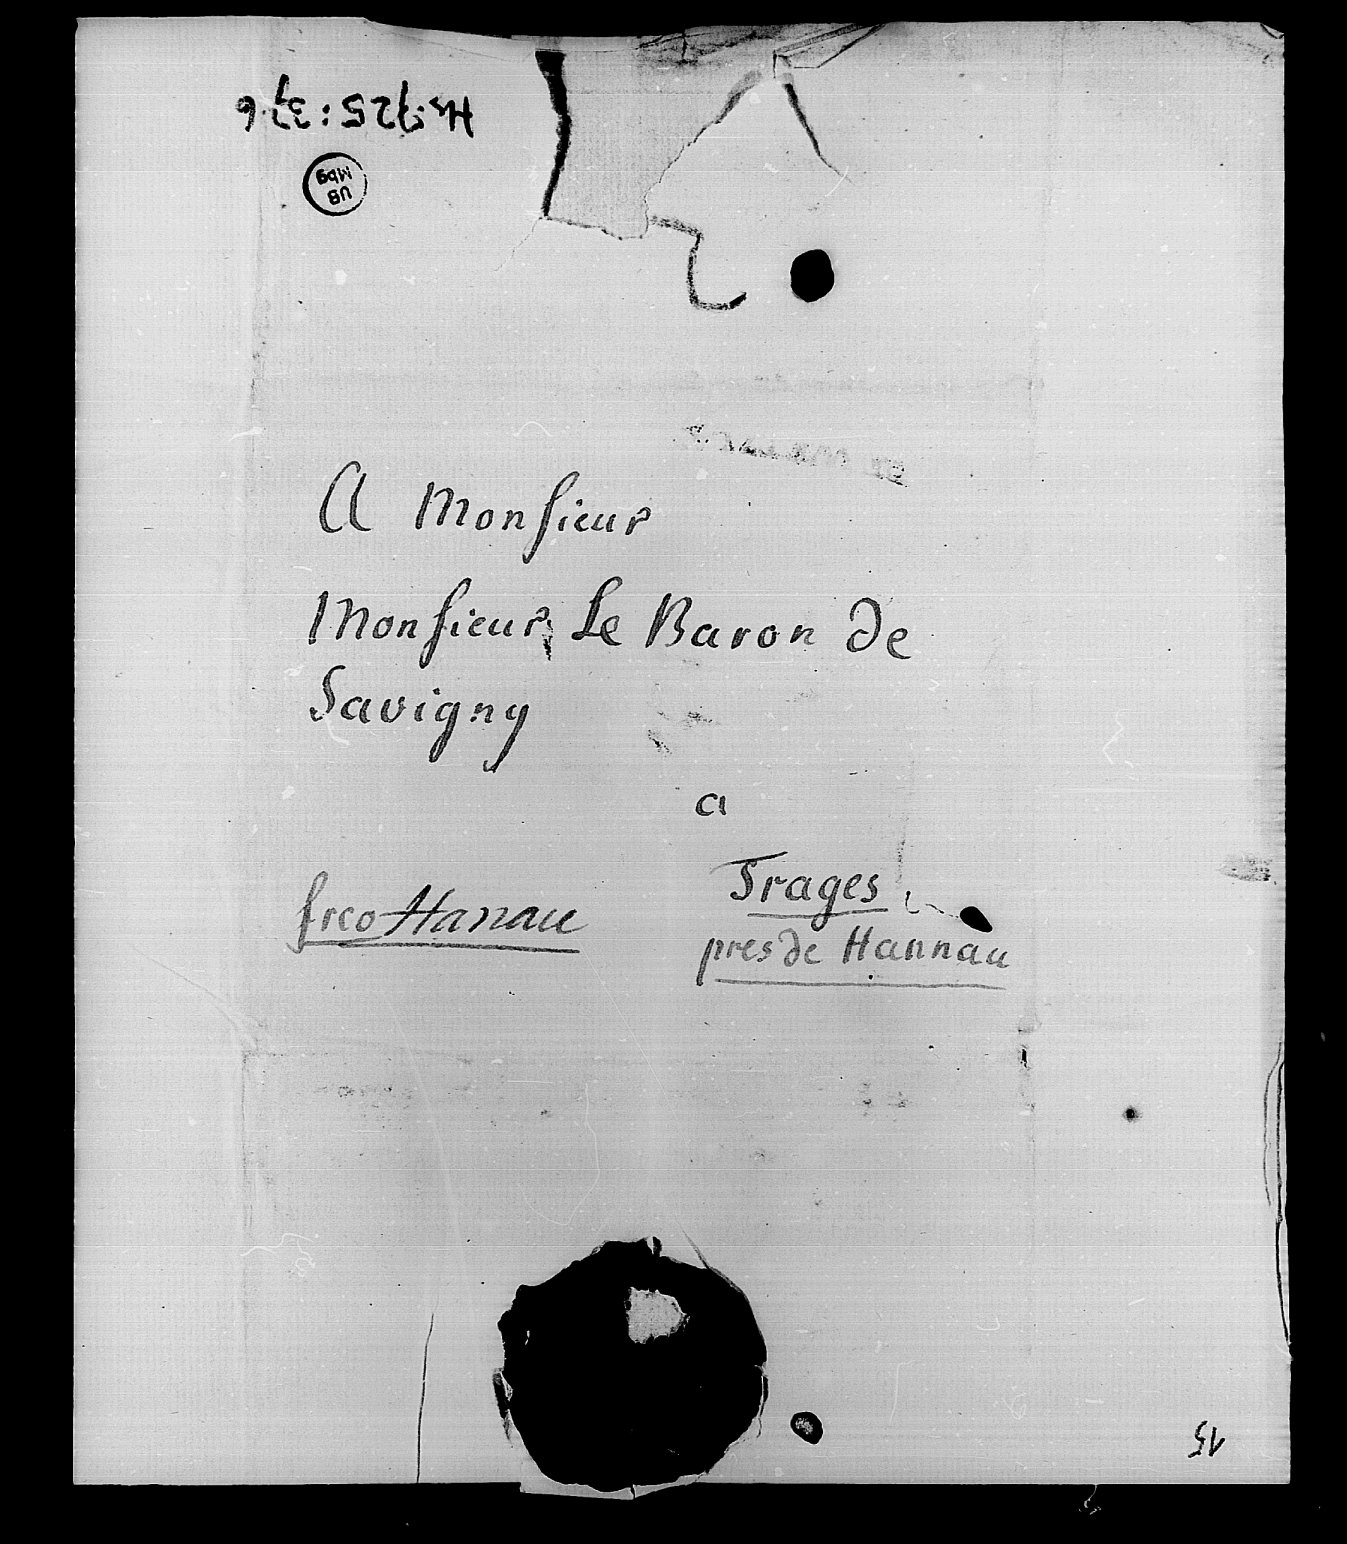 Hs. 725: 37.6
UB
Mbg
A Monsieur
Monsieur Le Baron de
Savigny
a
Trages
frco Hanau
pres de Hannau
15